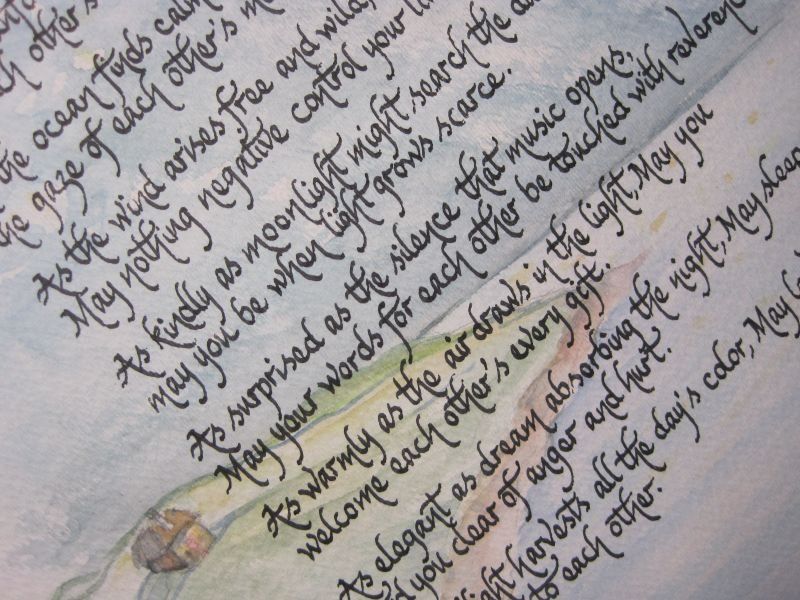 each other's
the ocean finds calm
the gaze of each other's
As the wind arises free and wild,
May nothing negative control your
As kindly as moonlight might search the
may you be when light grows scarce.
As surprised as the silence that music opens,
May your words for each other be touched with reverence
As warmly as the air draws in the light, May you
welcome each other's every gift.
As elegant as dream absorbing the night, May sleep
you clear of anger and hurt.
harvests all the day's color, May
to each other.